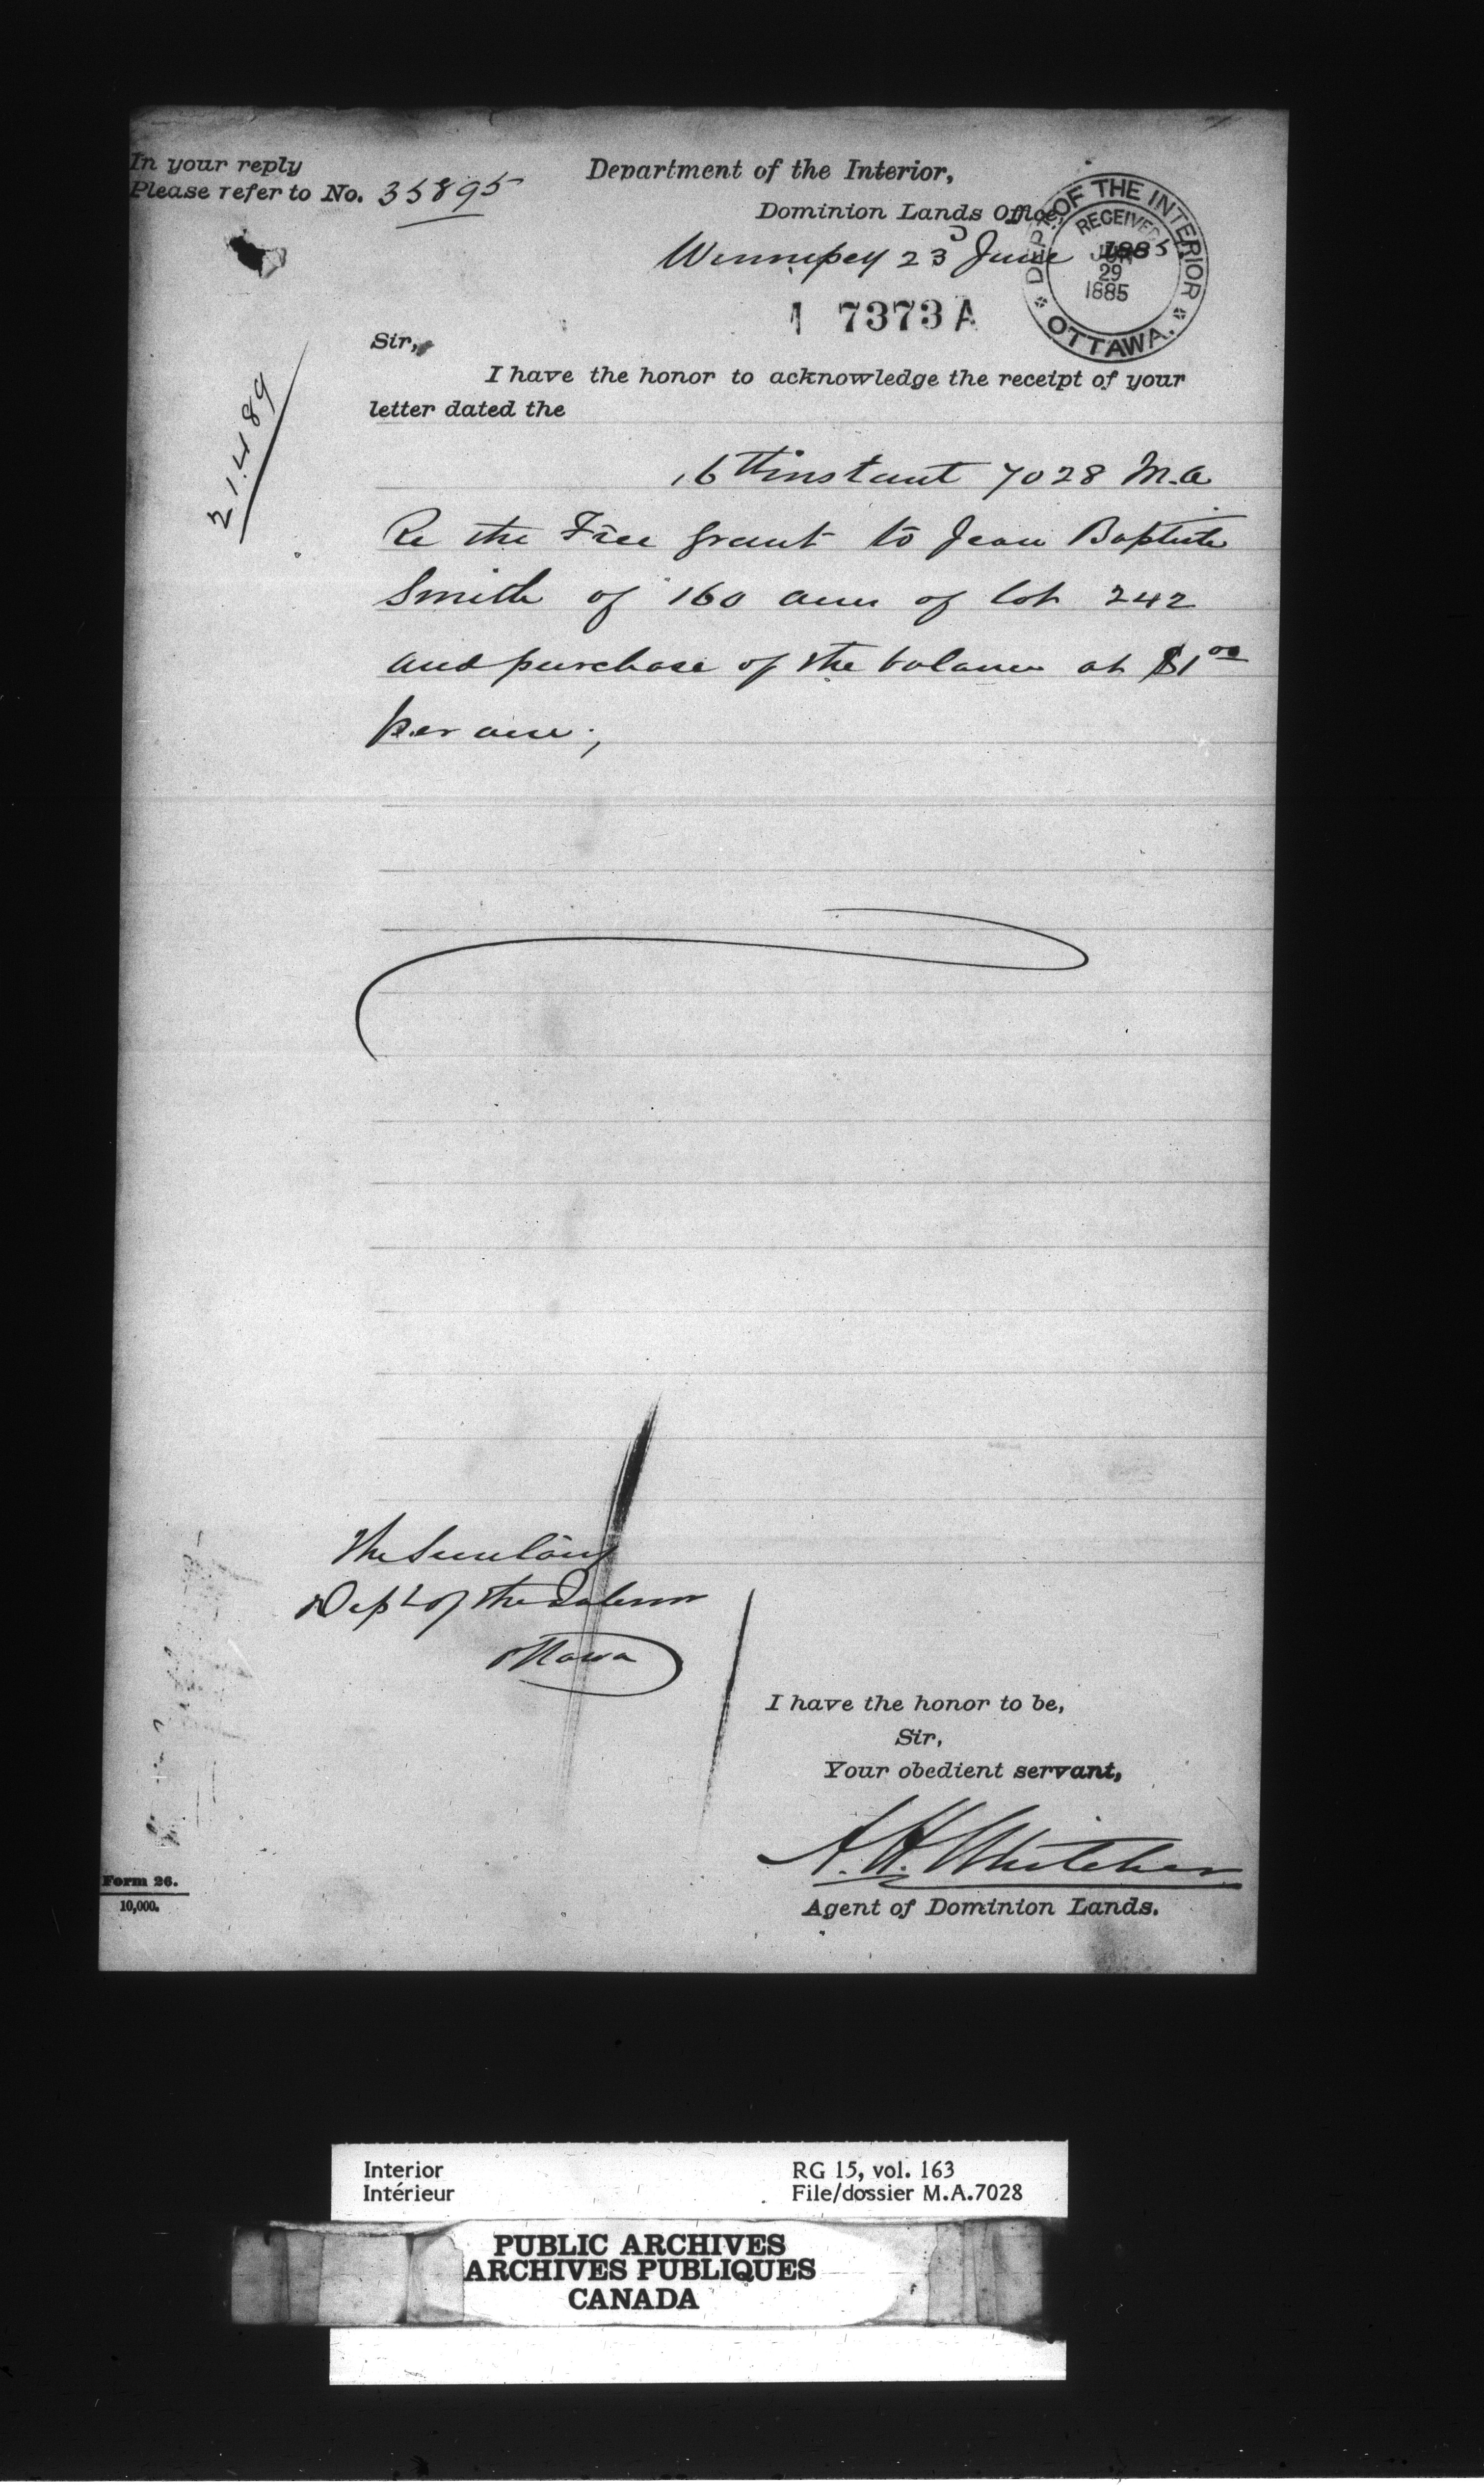 In your reply
Please refer to No. 35895
Department of the Interior,
Dominion Lands Office,
Winnipeg 23d June 1885
DEPT. OF THE INTERIOR
RECEIVED
JUN
29
1885
OTTAWA.
1 7373 A
21.489
Sir,
I have the honor to acknowledge the receipt of your
letter dated the
16th instant 7028 M.A
Re the Free grant to Jean Baptiste
Smith of 160 acres of lot 242
and purchase of the balance at $1.00
per acre;
The Secretary
Dept of the Interior
Ottawa
I have the honor to be,
Sir,
Your obedient servant,
A. H. Whitcher
Agent of Dominion Lands.
Form 26.
10,000.
Interior
Intérieur
RG 15, vol. 163
File/dossier M.A.7028
PUBLIC ARCHIVES
ARCHIVES PUBLIQUES
CANADA